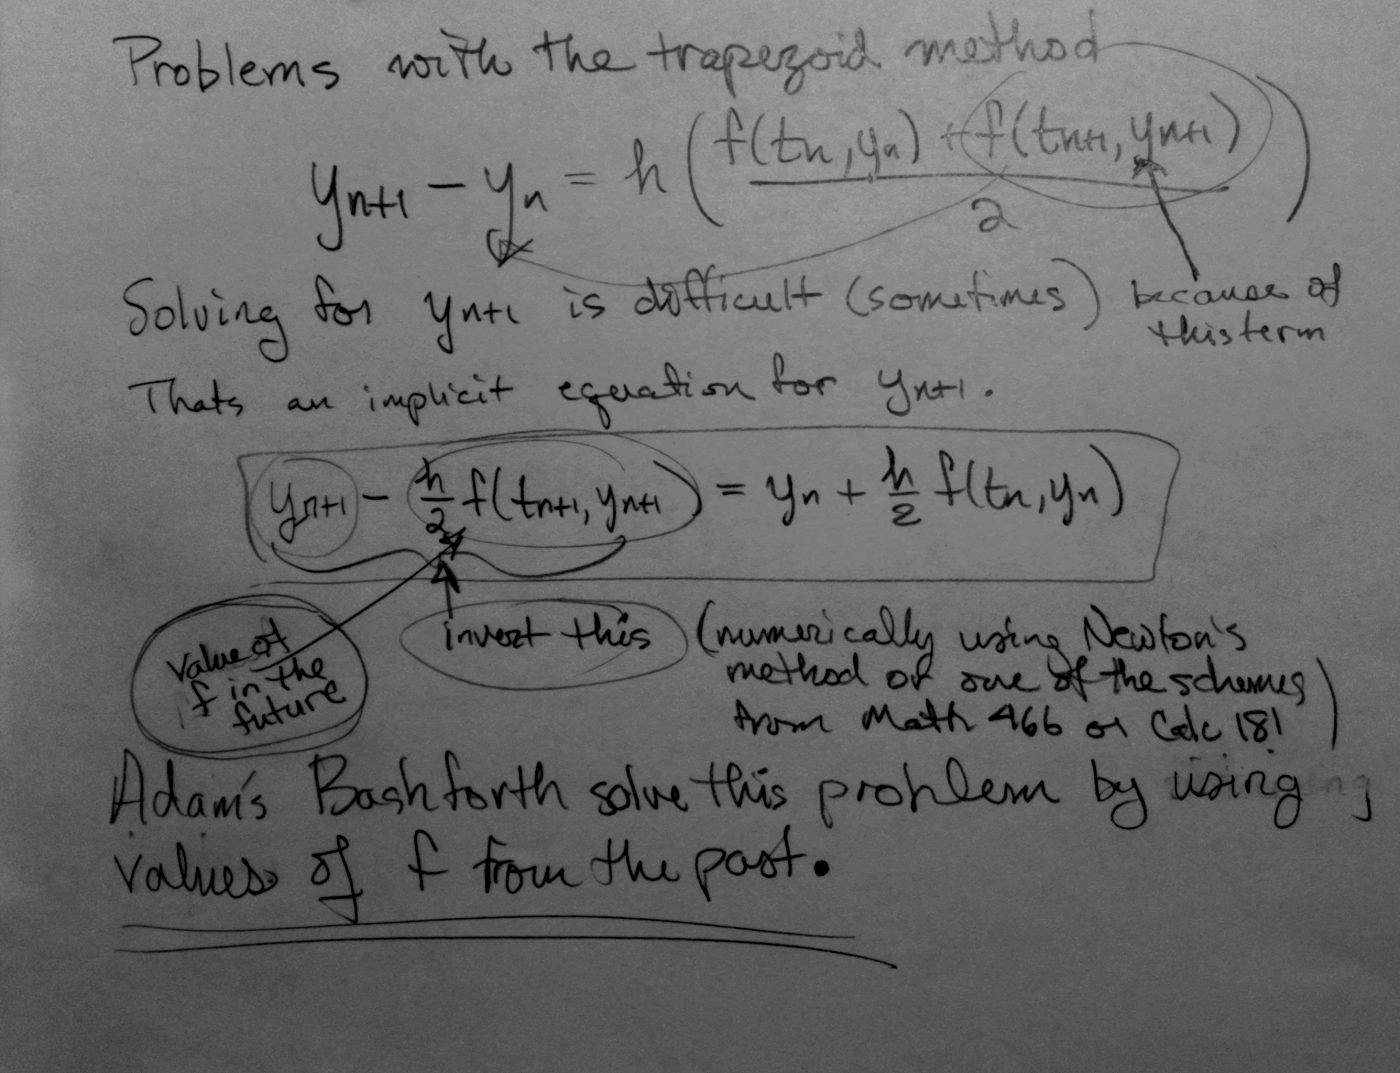 Problems with the trapezoid method
y_{n+1} - y_n = h ( (f(t_n, y_n) + f(t_{n+1}, y_{n+1})) / 2 )
Solving for y_{n+1} is difficult (sometimes) because of
this term
Thats an implicit equation for y_{n+1}.
y_{n+1} - h/2 f(t_{n+1}, y_{n+1}) = y_n + h/2 f(t_n, y_n)
value of
f in the
future
invert this
(numerically using Newton's
method or one of the schemes
from Math 466 or Calc 181)
Adam's Bashforth solve this problem by using
values of f from the past.